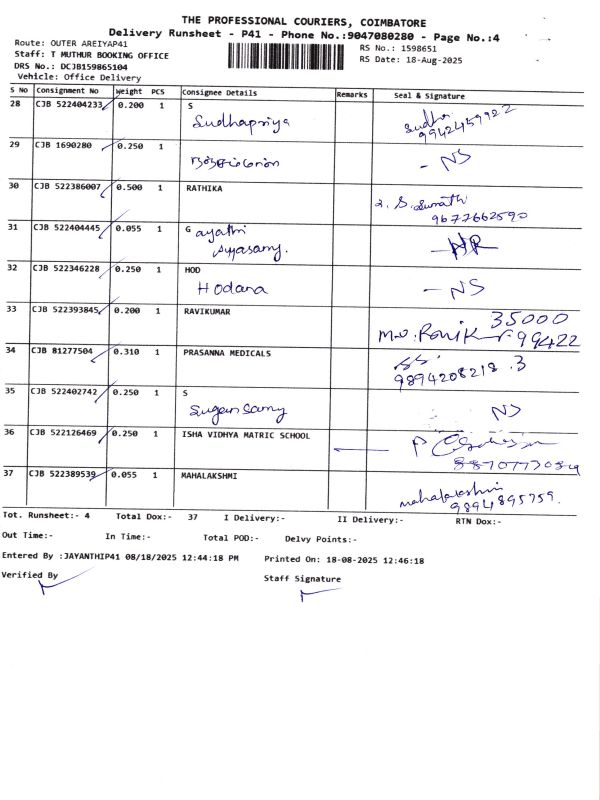 THE PROFESSIONAL COURIERS, COIMBATORE
Delivery Runsheet - P41 - Phone No.:9047080280 - Page No.:4
Route: OUTER AREIYAP41
Staff: T MUTHUR BOOKING OFFICE
DRS No.: DCJB159865104
Vehicle: Office Delivery
RS No.: 1598651
RS Date: 18-Aug-2025
S No Consignment No Weight PCS Consignee Details Remarks Seal & Signature
28 CJB 522404233 0.200 1 S
Sudhapriya Sudha
9942459922
29 CJB 1690280 0.250 1
- NS
30 CJB 522386007 0.500 1 RATHIKA
9677662590
31 CJB 522404445 0.055 1 Gayathri
Ayyasamy. - NR
32 CJB 522346228 0.250 1 HOD
Hodara - NS
33 CJB 522393845 0.200 1 RAVIKUMAR 35000
99422
34 CJB 81277504 0.310 1 PRASANNA MEDICALS
9894208218.3
35 CJB 522402742 0.250 1 S
Sugan Samy NS
36 CJB 522126469 0.250 1 ISHA VIDHYA MATRIC SCHOOL
37 CJB 522389539 0.055 1 MAHALAKSHMI mahalakshmi
9894895759.
Tot. Runsheet:- 4 Total Dox:- 37 I Delivery:- II Delivery:- RTN Dox:-
Out Time:- In Time:- Total POD:- Delvy Points:-
Entered By :JAYANTHIP41 08/18/2025 12:44:18 PM Printed On: 18-08-2025 12:46:18
Verified By Staff Signature